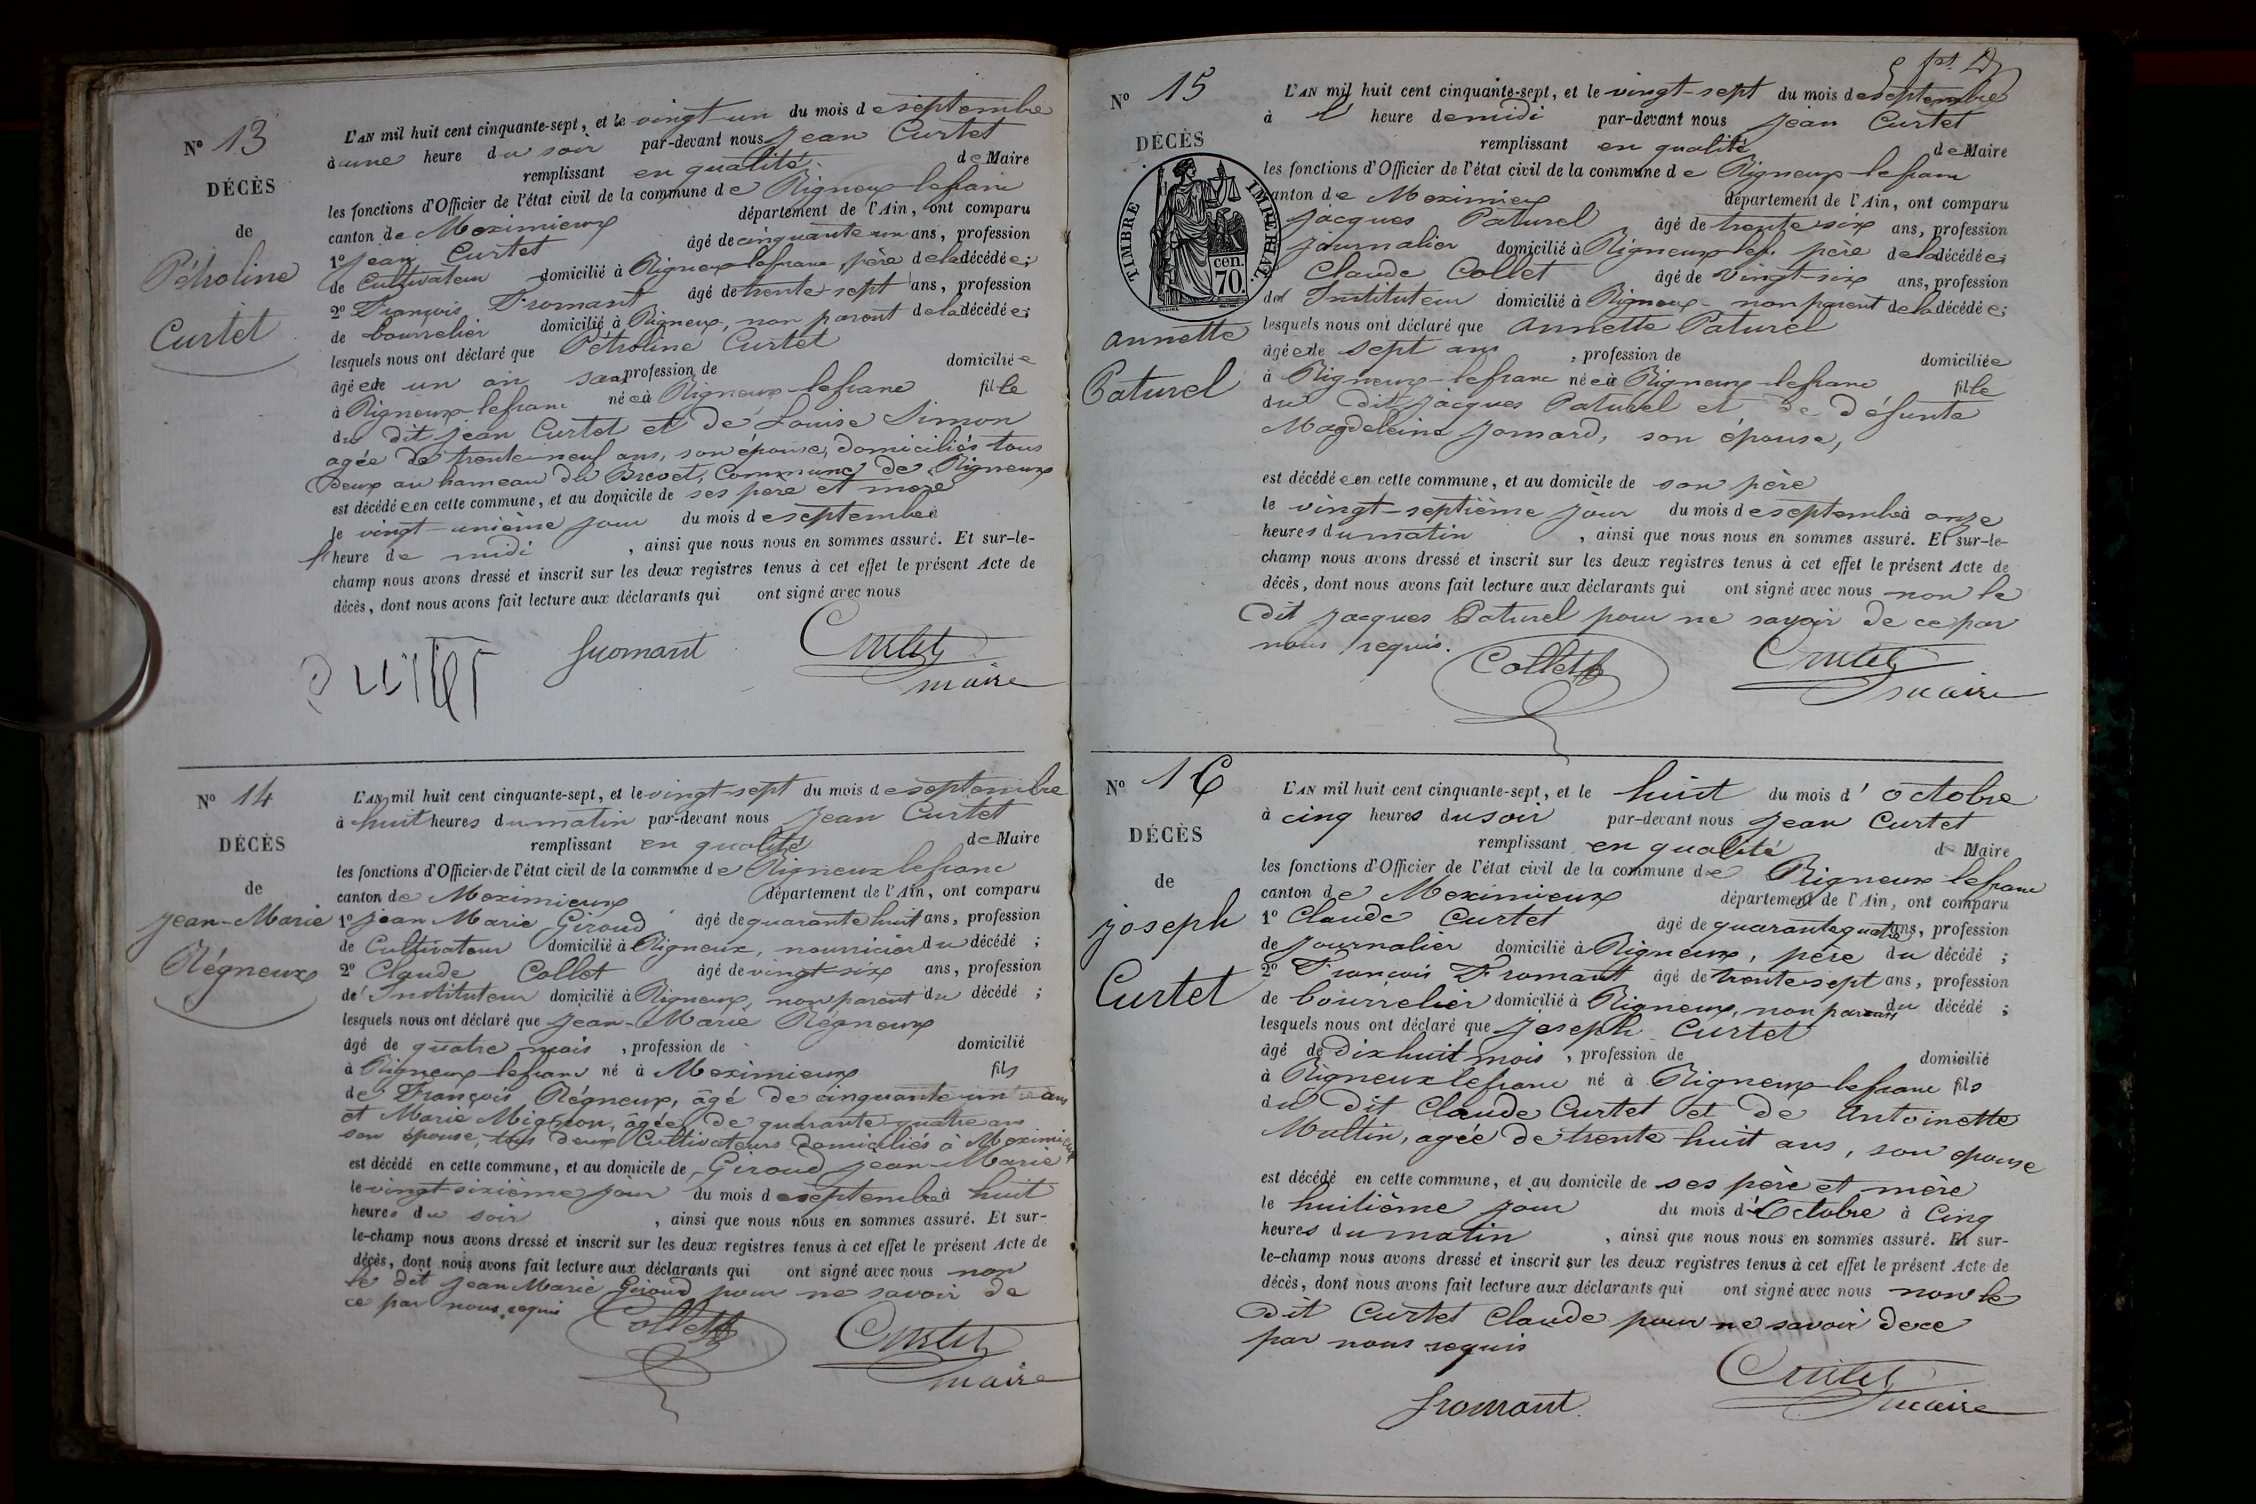 Nº 13
DÉCÈS
de
Pétroline
Curtet
L'AN mil huit cent cinquante-sept, et le vingt-un du mois de septembre
à une heure du soir par-devant nous Jean Curtet
remplissant en qualité de Maire
les fonctions d'Officier de l'état civil de la commune de Rigneux-lefranc
canton de Meximieux département de l'Ain, ont comparu
1º Jean Curtet âgé de cinquante un ans, profession
de Cultivateur domicilié à Rigneux-lefranc, père de la décédée;
2º François Fromant âgé de trente-sept ans, profession
de bourrelier domicilié à Rigneux, non parent de la décédée;
lesquels nous ont déclaré que Pétroline Curtet
âgée de un an sans profession de domiciliée
à Rigneux-lefranc née à Rigneux-lefranc fille
du dit Jean Curtet et de Louise Simon
agée de trente-neuf ans, son épouse, domiciliés tous
deux au hameau du Brevet, Commune de Rigneux
est décédée en cette commune, et au domicile de ses père et mère
le vingt-unième jour du mois de septembre à
l'heure de midi , ainsi que nous nous en sommes assuré. Et sur-le-
champ nous avons dressé et inscrit sur les deux registres tenus à cet effet le présent Acte de
décès, dont nous avons fait lecture aux déclarants qui ont signé avec nous
curtet fromant Curtet
maire
Nº 14
DÉCÈS
de
Jean-Marie
Régneux
L'AN mil huit cent cinquante-sept, et le vingt-sept du mois de septembre
à huit heures du matin par-devant nous Jean Curtet
remplissant en qualité de Maire
les fonctions d'Officier de l'état civil de la commune de Rigneux lefranc
canton de Meximieux département de l'Ain, ont comparu
1º Jean Marie Giroud âgé de quarante huit ans, profession
de Cultivateur domicilié à Rigneux, nourricier du décédé ;
2º Claude Collet âgé de vingt-six ans, profession
de Instituteur domicilié à Rigneux, non parent du décédé ;
lesquels nous ont déclaré que Jean-Marie Régneux
âgé de quatre mois , profession de domicilié
à Rigneux-lefranc né à Meximieux fils
de François Régneux, âgé de cinquante-un ans
et Marie Mignon, âgée de quarante-quatre ans
son épouse, tous deux Cultivateurs domiciliés à Meximieux
est décédé en cette commune, et au domicile de Giroud Jean-Marie
le vingt-sixième jour du mois de septembre à huit
heures du soir , ainsi que nous nous en sommes assuré. Et sur-
le-champ nous avons dressé et inscrit sur les deux registres tenus à cet effet le présent Acte de
décès, dont nous avons fait lecture aux déclarants qui ont signé avec nous non
le dit Jean Marie Giroud pour ne savoir de
ce par nous requis
Collet Curtet
maire
Nº 15
DÉCÈS
TIMBRE IMPERIAL.
70 cen.
annette
Paturel
L'AN mil huit cent cinquante-sept, et le vingt-sept du mois de septembre
à l' heure de midi par-devant nous Jean Curtet
remplissant en qualité de Maire
les fonctions d'Officier de l'état civil de la commune de Rigneux-lefranc
canton de Meximieux département de l'Ain, ont comparu
Jacques Paturel âgé de trente six ans, profession
journalier domicilié à Rigneux lef. père de la décédée;
Claude Collet âgé de vingt-six ans, profession
d' Instituteur domicilié à Rigneux - non parent de la décédée;
lesquels nous ont déclaré que annette Paturel
âgée de sept ans , profession de domiciliée
à Rigneux-lefranc née à Rigneux-lefranc fille
du dit Jacques Paturel et de défunte
Magdeleine Jomard, son épouse,
est décédée en cette commune, et au domicile de son père
le vingt-septième jour du mois de septembre à onze
heures du matin , ainsi que nous nous en sommes assuré. Et sur-le-
champ nous avons dressé et inscrit sur les deux registres tenus à cet effet le présent Acte de
décès, dont nous avons fait lecture aux déclarants qui ont signé avec nous non le
dit Jacques Paturel pour ne savoir de ce par
nous requis.
Collet Curtet
maire
Nº 16
DÉCÈS
de
joseph
Curtet
L'AN mil huit cent cinquante-sept, et le huit du mois d' octobre
à cinq heures du soir par-devant nous Jean Curtet
remplissant en qualité de Maire
les fonctions d'Officier de l'état civil de la commune de Rigneux lefranc
canton de Meximieux département de l'Ain, ont comparu
1º Claude Curtet âgé de quarante quatre ans, profession
de Journalier domicilié à Rigneux, père du décédé ;
2º François Fromant âgé de trente sept ans, profession
de bourrelier domicilié à Rigneux, non parent du décédé ;
lesquels nous ont déclaré que Joseph Curtet
âgé de dix huit mois , profession de domicilié
à Rigneux lefranc né à Rigneux-lefranc fils
du dit Claude Curtet et de Antoinette
Multin, agée de trente-huit ans, son epouse
est décédé en cette commune, et au domicile de ses père et mère
le huitième jour du mois d'Octobre à Cinq
heures du matin , ainsi que nous nous en sommes assuré. Et sur-
le-champ nous avons dressé et inscrit sur les deux registres tenus à cet effet le présent Acte de
décès, dont nous avons fait lecture aux déclarants qui ont signé avec nous non le
dit Curtet Claude pour ne savoir de ce
par nous requis
Curtet
fromant maire